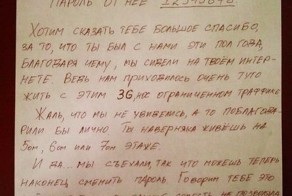 ПАРОЛЬ ОТ НЕЁ
ХОТИМ СКАЗАТЬ ТЕБЕ БОЛЬШОЕ СПАСИБО,
ЗА ТО, ЧТО ТЫ БЫЛ С НАМИ ЭТИ ПОЛ ГОДА,
БЛАГОДАРЯ ЧЕМУ, МЫ СИДЕЛИ НА ТВОЁМ ИНТЕР-
НЕТЕ. ВЕДЬ НАМ ПРИХОДИЛОСЬ ОЧЕНЬ ТУГО
ЖИТЬ С ЭТИМ 3G, ОГРАНИЧЕННОМ ТРАФФИКЕ
ЖАЛЬ, ЧТО МЫ НЕ УВИДЕЛИСЬ, А ТО ПОБЛАГОДА-
РИЛИ БЫ ЛИЧНО. ТЫ НАВЕРНЯКА ЖИВЁШЬ НА
5ОМ, 6ОМ ИЛИ 7ОМ ЭТАЖЕ.
И ДА... МЫ СЪЕХАЛИ, ТАК ЧТО МОЖЕШЬ ТЕПЕРЬ
НАКОНЕЦ СМЕНИТЬ ПАРОЛЬ. ГОВОРИМ ТЕБЕ ЭТО